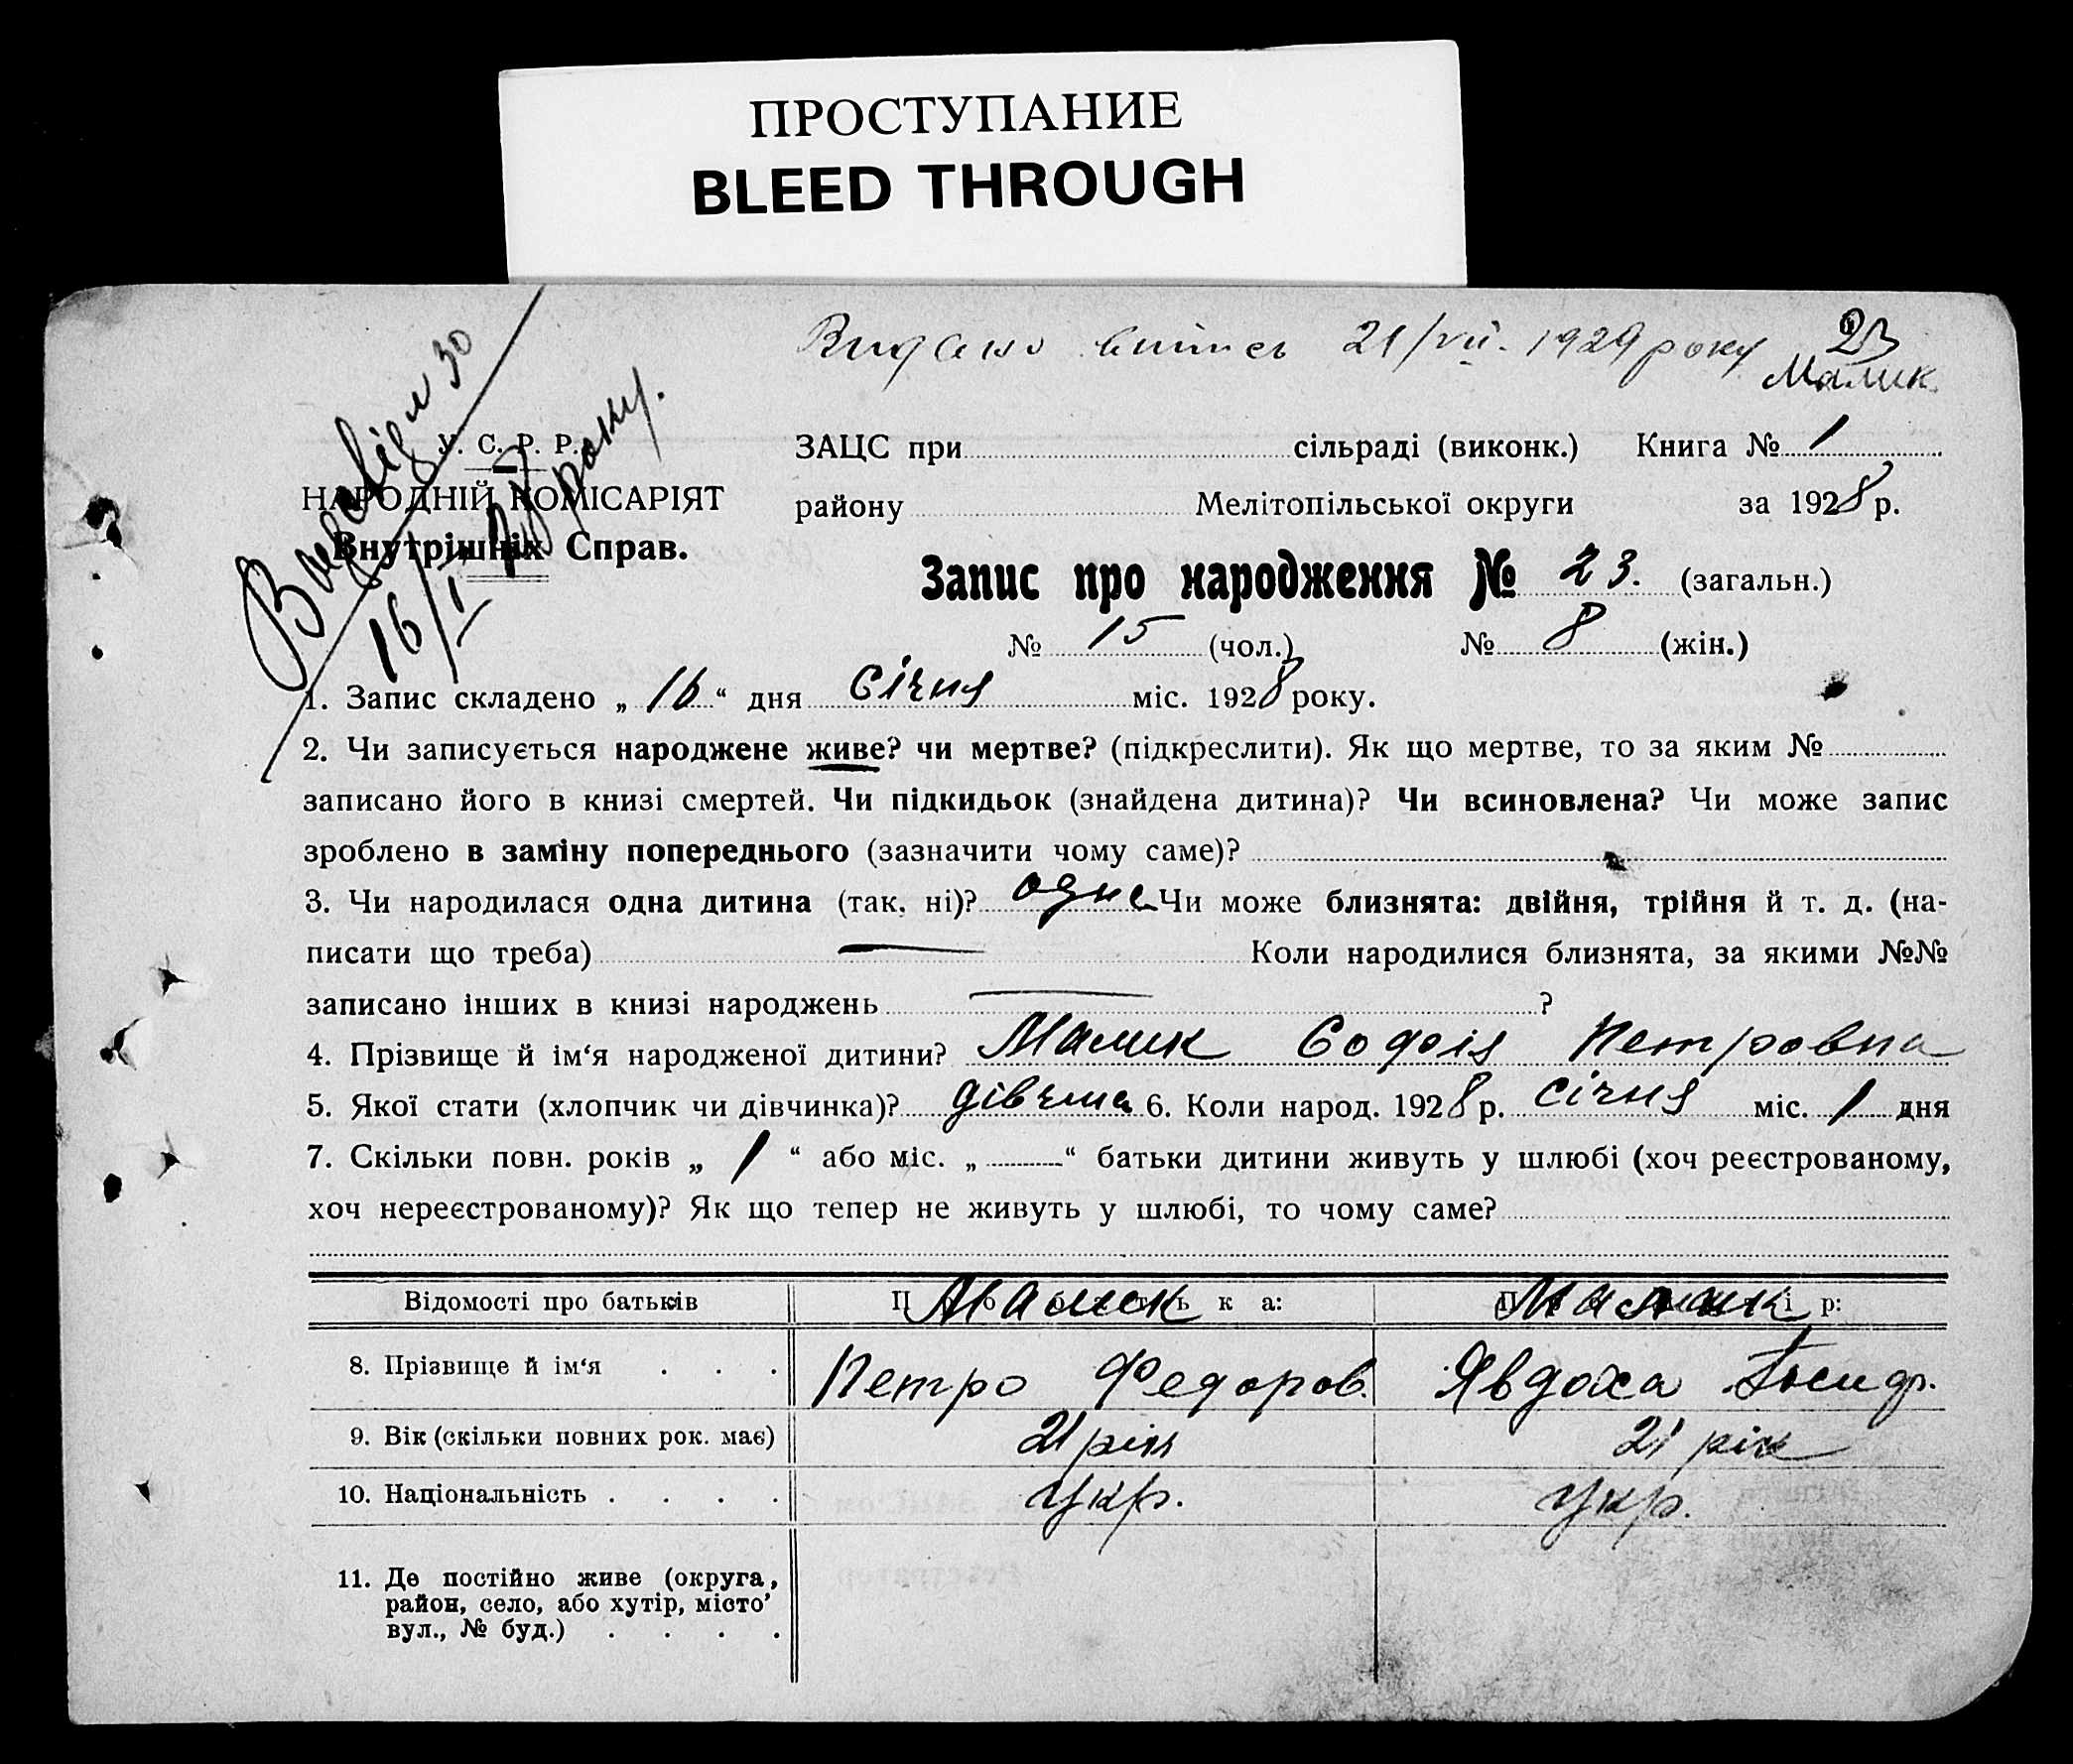 ПРОСТУПАНИЕ
BLEED THROUGH
Видано витпсь 21/VII. 1929 року 23
Малик
У. С. Р. Р.
НАРОДНІЙ КОМІСАРІЯТ
Внутрішніх Справ.
16/I 28 року.
ЗАЦС при сільраді (виконк.) Книга № 1
району Мелітопільської округи за 1928 р.
Запис про народження № 23. (загальн.)
№ 15 (чол.) № 8 (жін.)
1. Запис складено „ 16 “ дня Січня міс. 1928 року.
2. Чи записується народжене живе? чи мертве? (підкреслити). Як що мертве, то за яким №
записано його в книзі смертей. Чи підкидьок (знайдена дитина)? Чи всиновлена? Чи може запис
зроблено в заміну попереднього (зазначити чому саме)?
3. Чи народилася одна дитина (так, ні)? одна Чи може близнята: двійня, трійня й т. д. (на-
писати що треба) — Коли народилися близнята, за якими №№
записано інших в книзі народжень — ?
4. Прізвище й ім‘я народженої дитини? Малик Софія Петровна
5. Якої стати (хлопчик чи дівчинка)? дівчина 6. Коли народ. 1928 р. січня міс. 1 дня
7. Скільки повн. років „ 1 “ або міс. „ “ батьки дитини живуть у шлюбі (хоч реєстрованому,
хоч нереєстрованому)? Як що тепер не живуть у шлюбі, то чому саме?
Відомості про батьків Про батька: Малик Про матір: Малик
8. Прізвище й ім‘я . . . Петро Федоров. Явдоха
9. Вік (скільки повних рок. має) 21 рік 21 рік
10. Національність . . . . Укр. Укр.
11. Де постійно живе (округа,
район, село, або хутір, місто’
вул., № буд.) . . . .